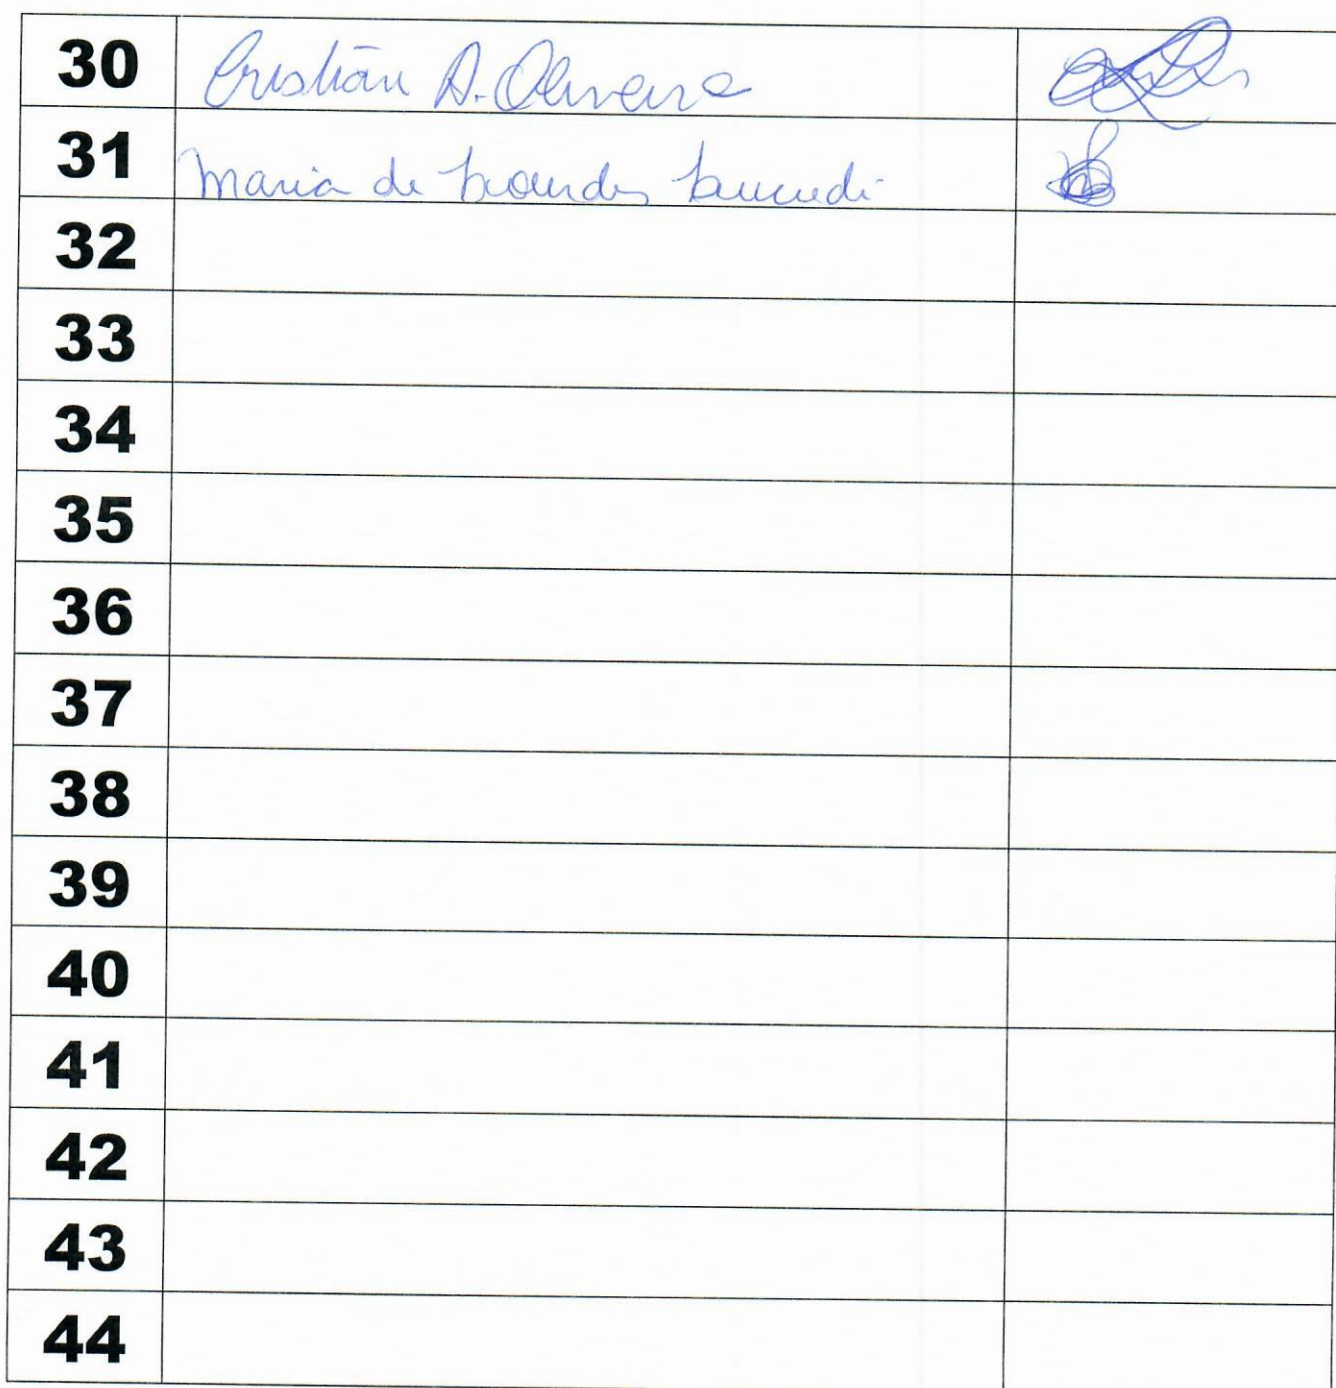 30 Cristian A. Oliveira
31 Maria de Lourdes
32
33
34
35
36
37
38
39
40
41
42
43
44